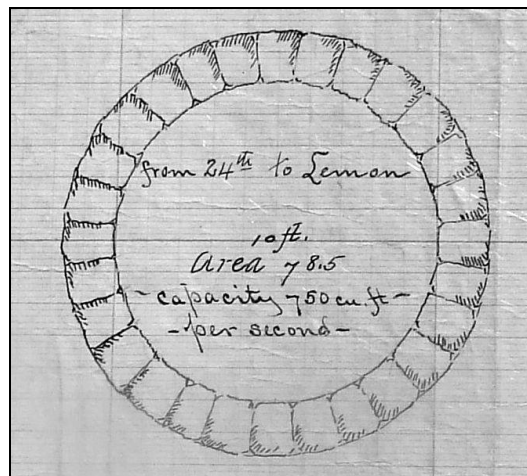 from 24th to Lemon
10 ft.
Area 78.5
- capacity 750 cu. ft -
- per second -